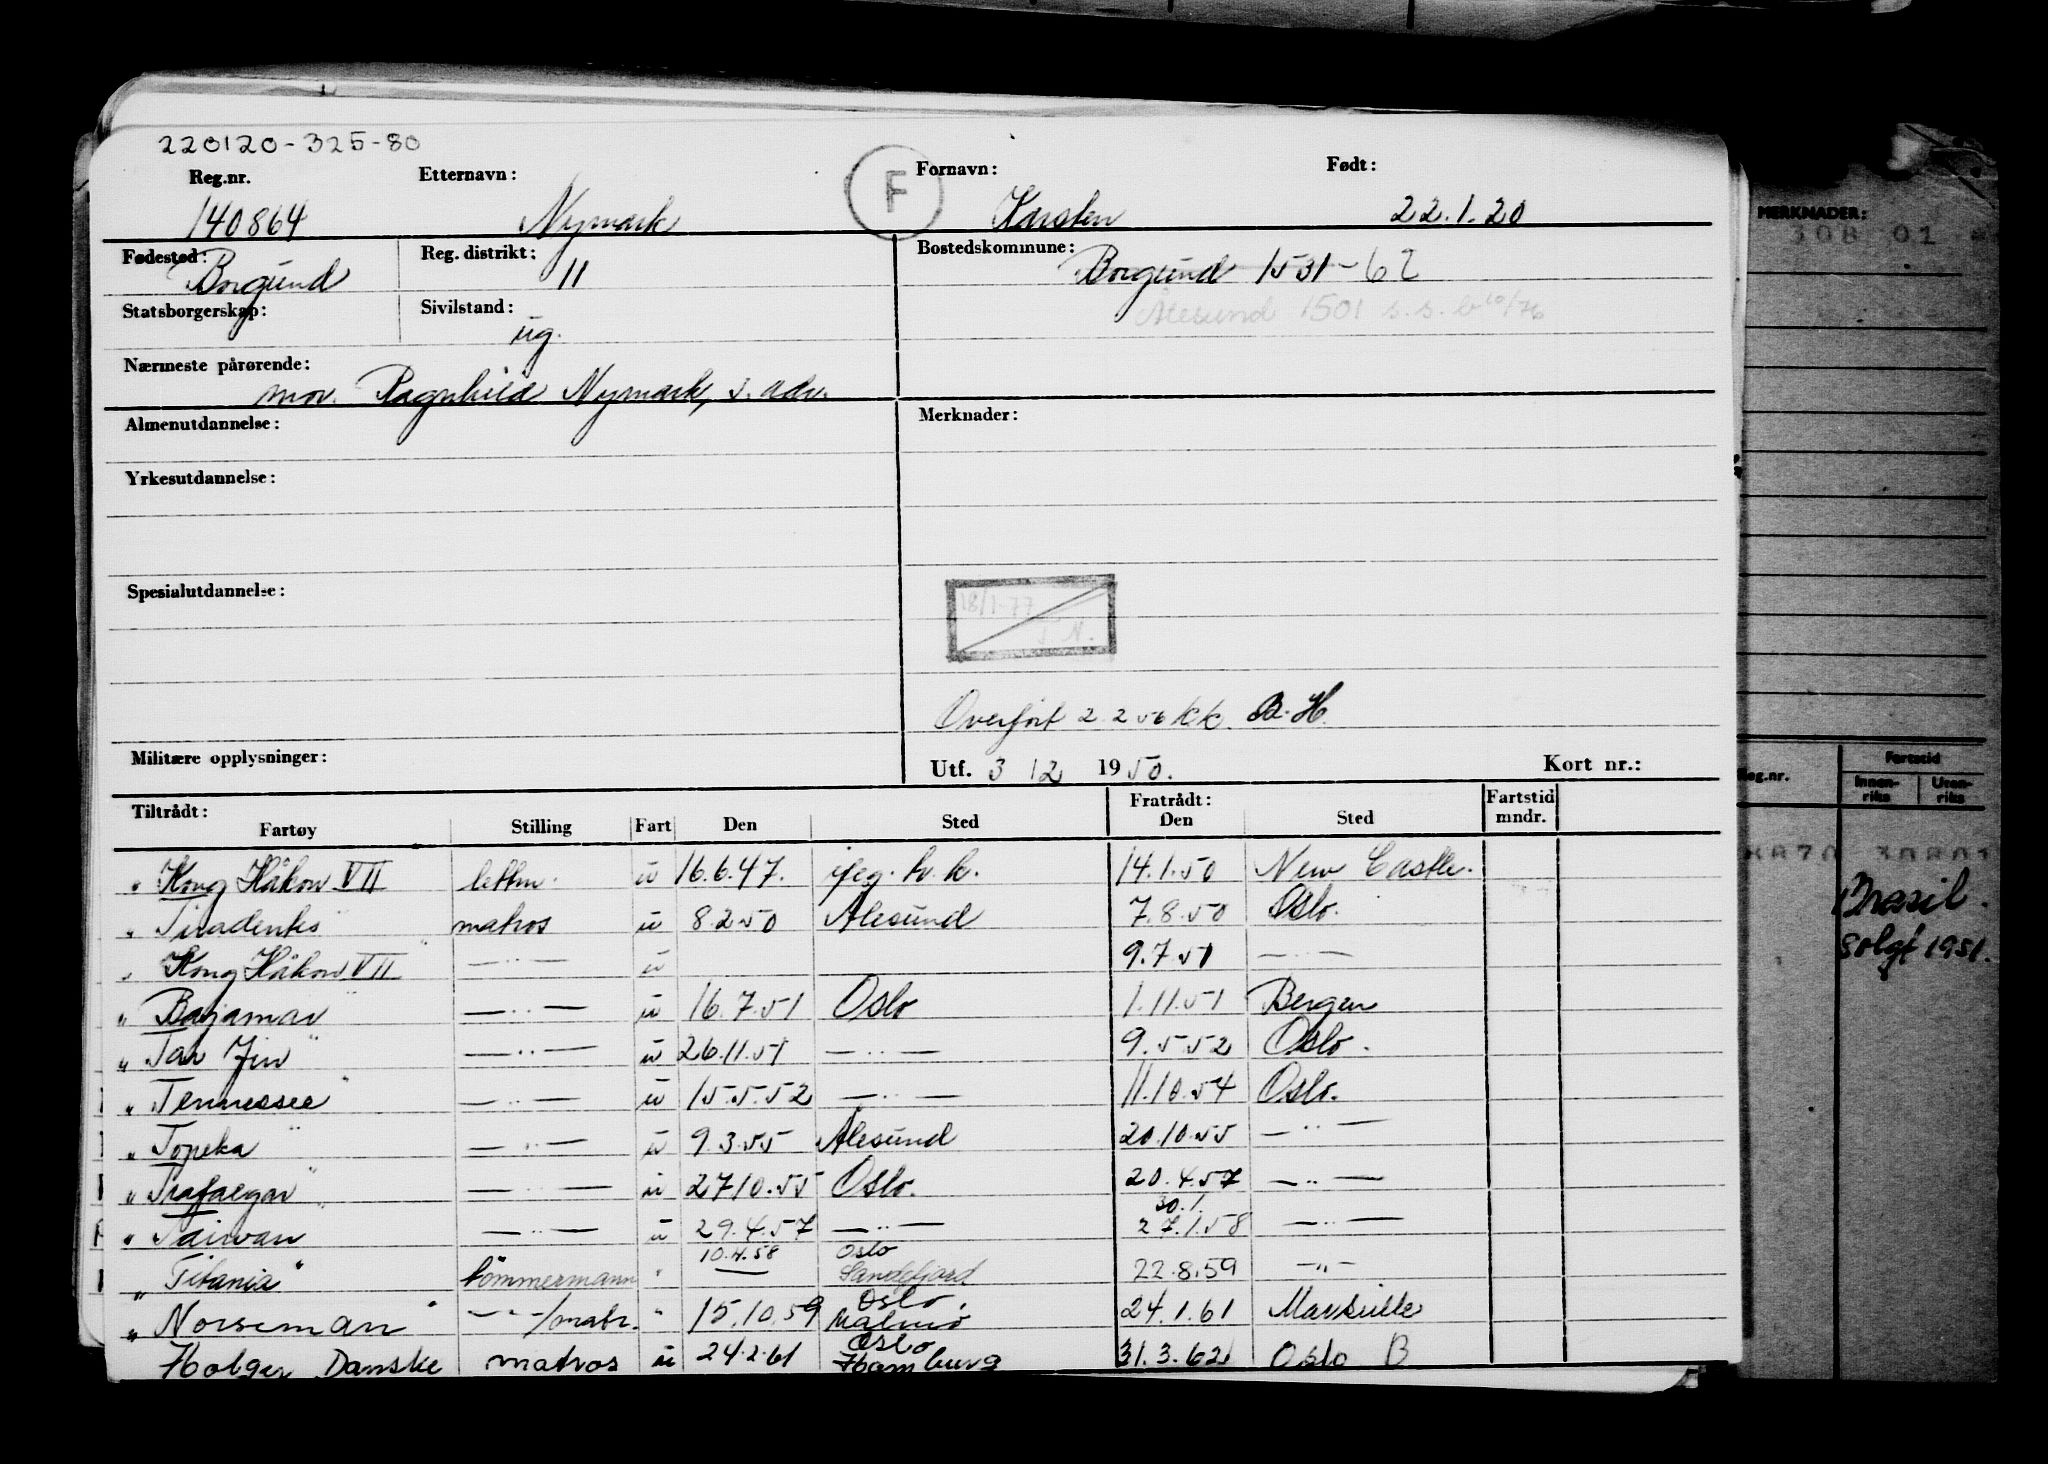 220120-325-80
Reg.nr. Etternavn: F Fornavn: Født:
140864 Nymark Karsten 22.1.20
Fødested: Reg. distrikt: Bostedskommune:
Borgund 11 Borgund 1531-62
Statsborgerskap: Sivilstand: Ålesund 1501 s.s.b 10/76
ug.
Nærmeste pårørende:
mor. Ragnhild Nymark, s. adr.
Almenutdannelse: Merknader:
Yrkesutdannelse:
Spesialutdannelse:
18/1-77
T.N.
Overført 2.2.56 KK. B.H.
Militære opplysninger: Utf. 3 12 1950. Kort nr.:
Tiltrådt: Fratrådt: Fartstid
Fartøy Stilling Fart Den Sted Den Sted mndr.
" Kong Håkon VII lettm. u 16.6.47. 14.1.50 New Castle.
" Tiradentes matros u 8.2.50 Ålesund 7.8.50 Oslo.
" Kong Håkon VII —"— u 9.7.51 —"—
" Bajamar —"— u 16.7.51 Oslo 1.11.51 Bergen
" Tai Yin" —"— u 26.11.51 —"— 9.5.52 Oslo.
" Tennessee" —"— u 15.5.52 —"— 11.10.54 Oslo.
" Topeka" —"— u 9.3.55 Ålesund 20.10.55 —"—
" Trafalgar" —"— u 27.10.55 Oslo. 20.4.57 —"—
30.1.
" Taiwan —"— u 29.4.57 —"— 27.1.58 —"—
10.4.58 Oslo
" Titania" tömmermann " — Sandefjord 22.8.59 —"—
Oslo.
" Norseman" —"—/matr. " 15.10.59 Malmø 24.1.61 Marseille
Oslo
Holger Danske matros u 24.2.61 Hamburg 31.3.62 Oslo B
MERKNADER:
308 01
Reg.nr. Fartstid
Innen-riks Uten-riks
30801
Brasil.
Solgt 1951.